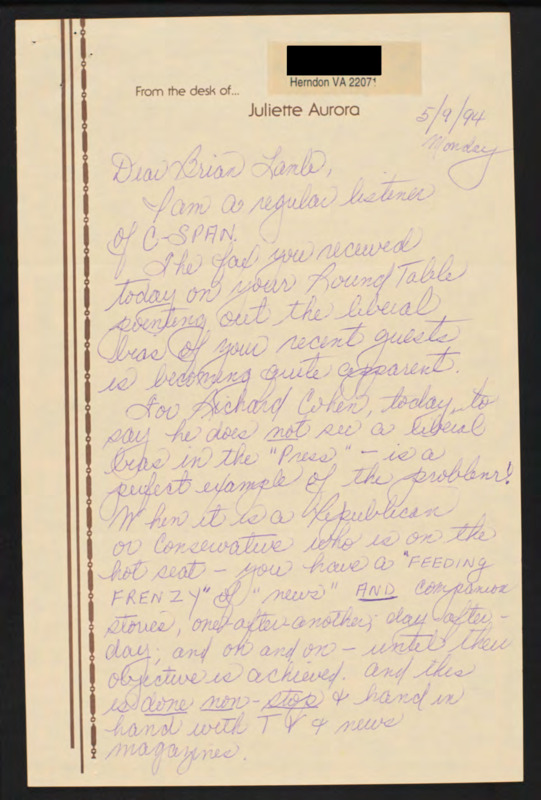 Herndon VA 22071
From the desk of...
Juliette Aurora
5/9/94
Monday
Dear Brian Lamb,
I am a regular listener
of C-SPAN.
The fax you received
today on your Round Table
pointing out the liberal
bias of your recent guests
is becoming quite apparent.
For Richard Cohen, today, to
say he does not see a liberal
bias in the "Press" - is a
perfect example of the problem!
When it is a Republican
or Conservative who is on the
hot seat - you have a "FEEDING
FRENZY" of "news" AND companion
stories, one-after-another, day-after-
day, and on and on - until their
objective is achieved. And this
is done non-stop & hand in
hand with TV & news
magazines.